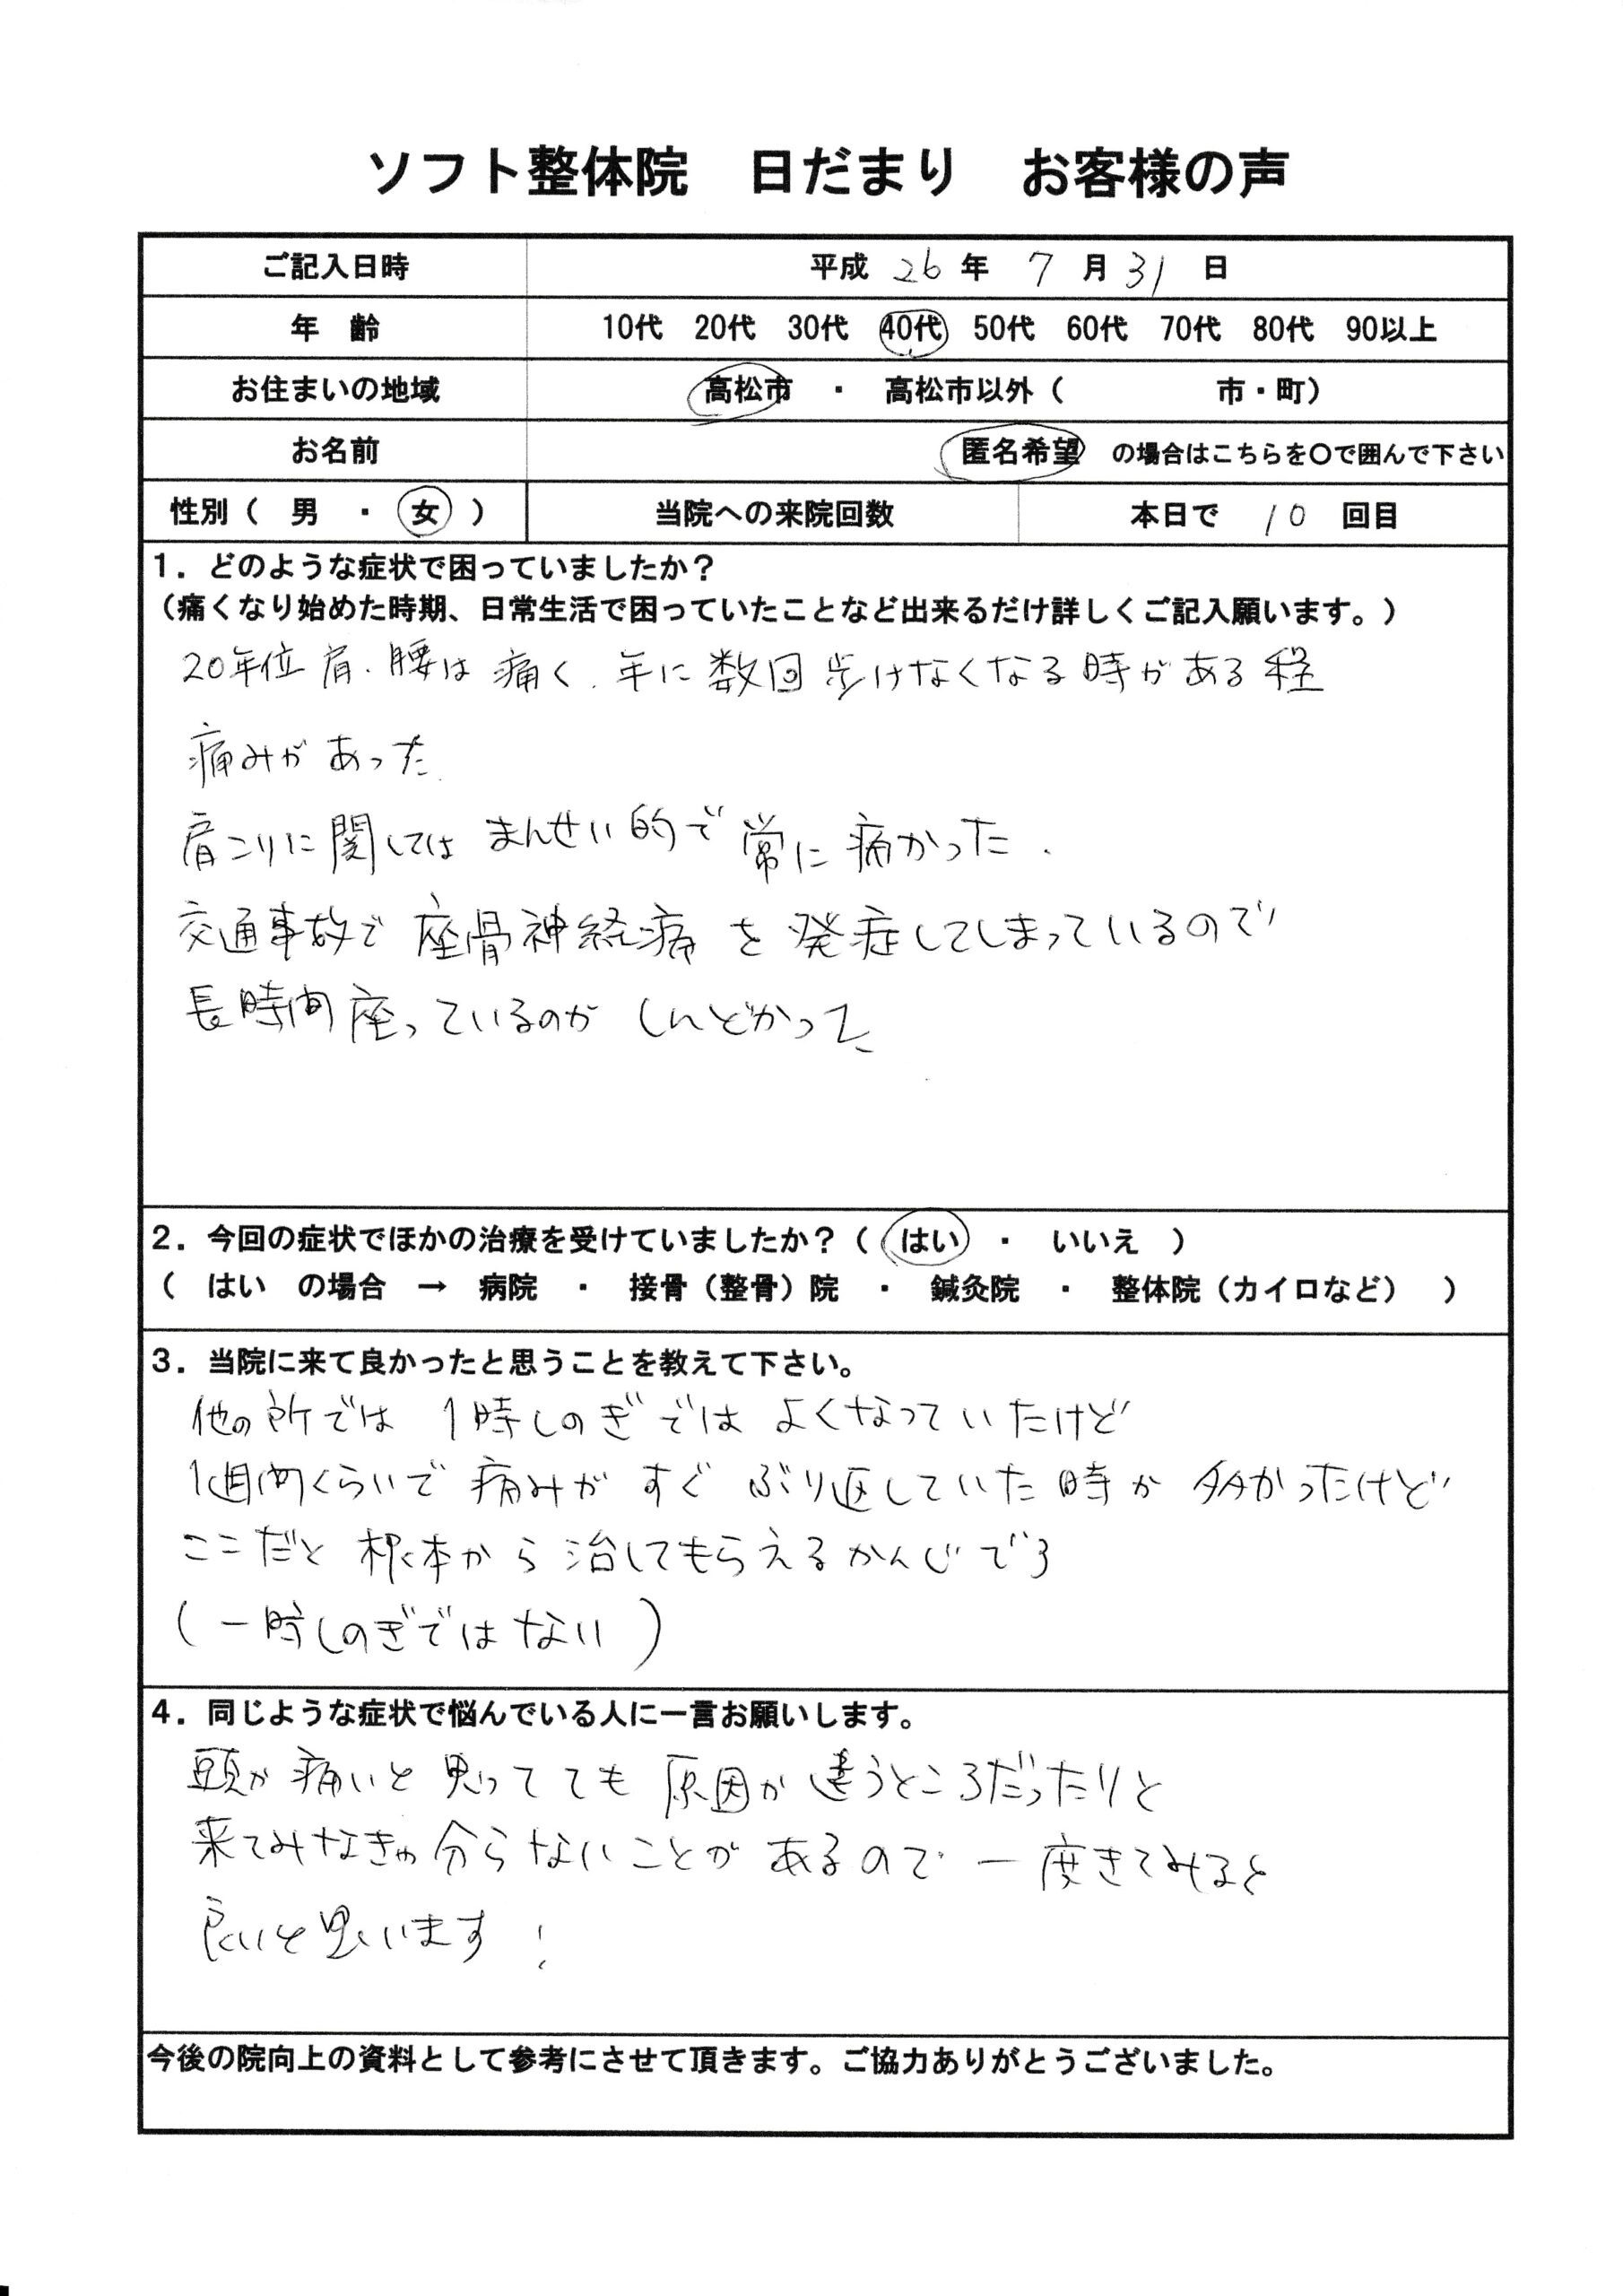 ソフト整体院　日だまり　お客様の声
ご記入日時　平成 26 年 7 月 31 日
年　齢　10代　20代　30代　40代　50代　60代　70代　80代　90以上
お住まいの地域　高松市　・　高松市以外（　　　市・町）
お名前　匿名希望　の場合はこちらを〇で囲んで下さい
性別（　男　・　女　）　当院への来院回数　本日で　10　回目
1．どのような症状で困っていましたか？
（痛くなり始めた時期、日常生活で困っていたことなど出来るだけ詳しくご記入願います。）
20年位 肩、腰は 痛く、年に 数回 歩けなくなる時がある程
痛みが あった.
肩こりに関しては まんせい的で 常に 痛かった.
交通事故で 座骨神経痛 を 発症してしまっているので
長時間 座っているのが しんどかった
2．今回の症状でほかの治療を受けていましたか？（　はい　・　いいえ　）
（　はい　の場合　→　病院　・　接骨（整骨）院　・　鍼灸院　・　整体院（カイロなど）　）
3．当院に来て良かったと思うことを教えて下さい。
他の所では 1時しのぎでは よくなっていたけど
1週間くらいで 痛みが すぐ ぶり返していた 時が 多かったけど
ここだと 根本から 治してもらえるかんじでる
（一時しのぎではない）
4．同じような症状で悩んでいる人に一言お願いします。
頭が 痛いと 思ってても 原因が 違うところだったりと
来てみなきゃ 分らないことが あるので 一度きてみると
良いと思います！
今後の院向上の資料として参考にさせて頂きます。ご協力ありがとうございました。